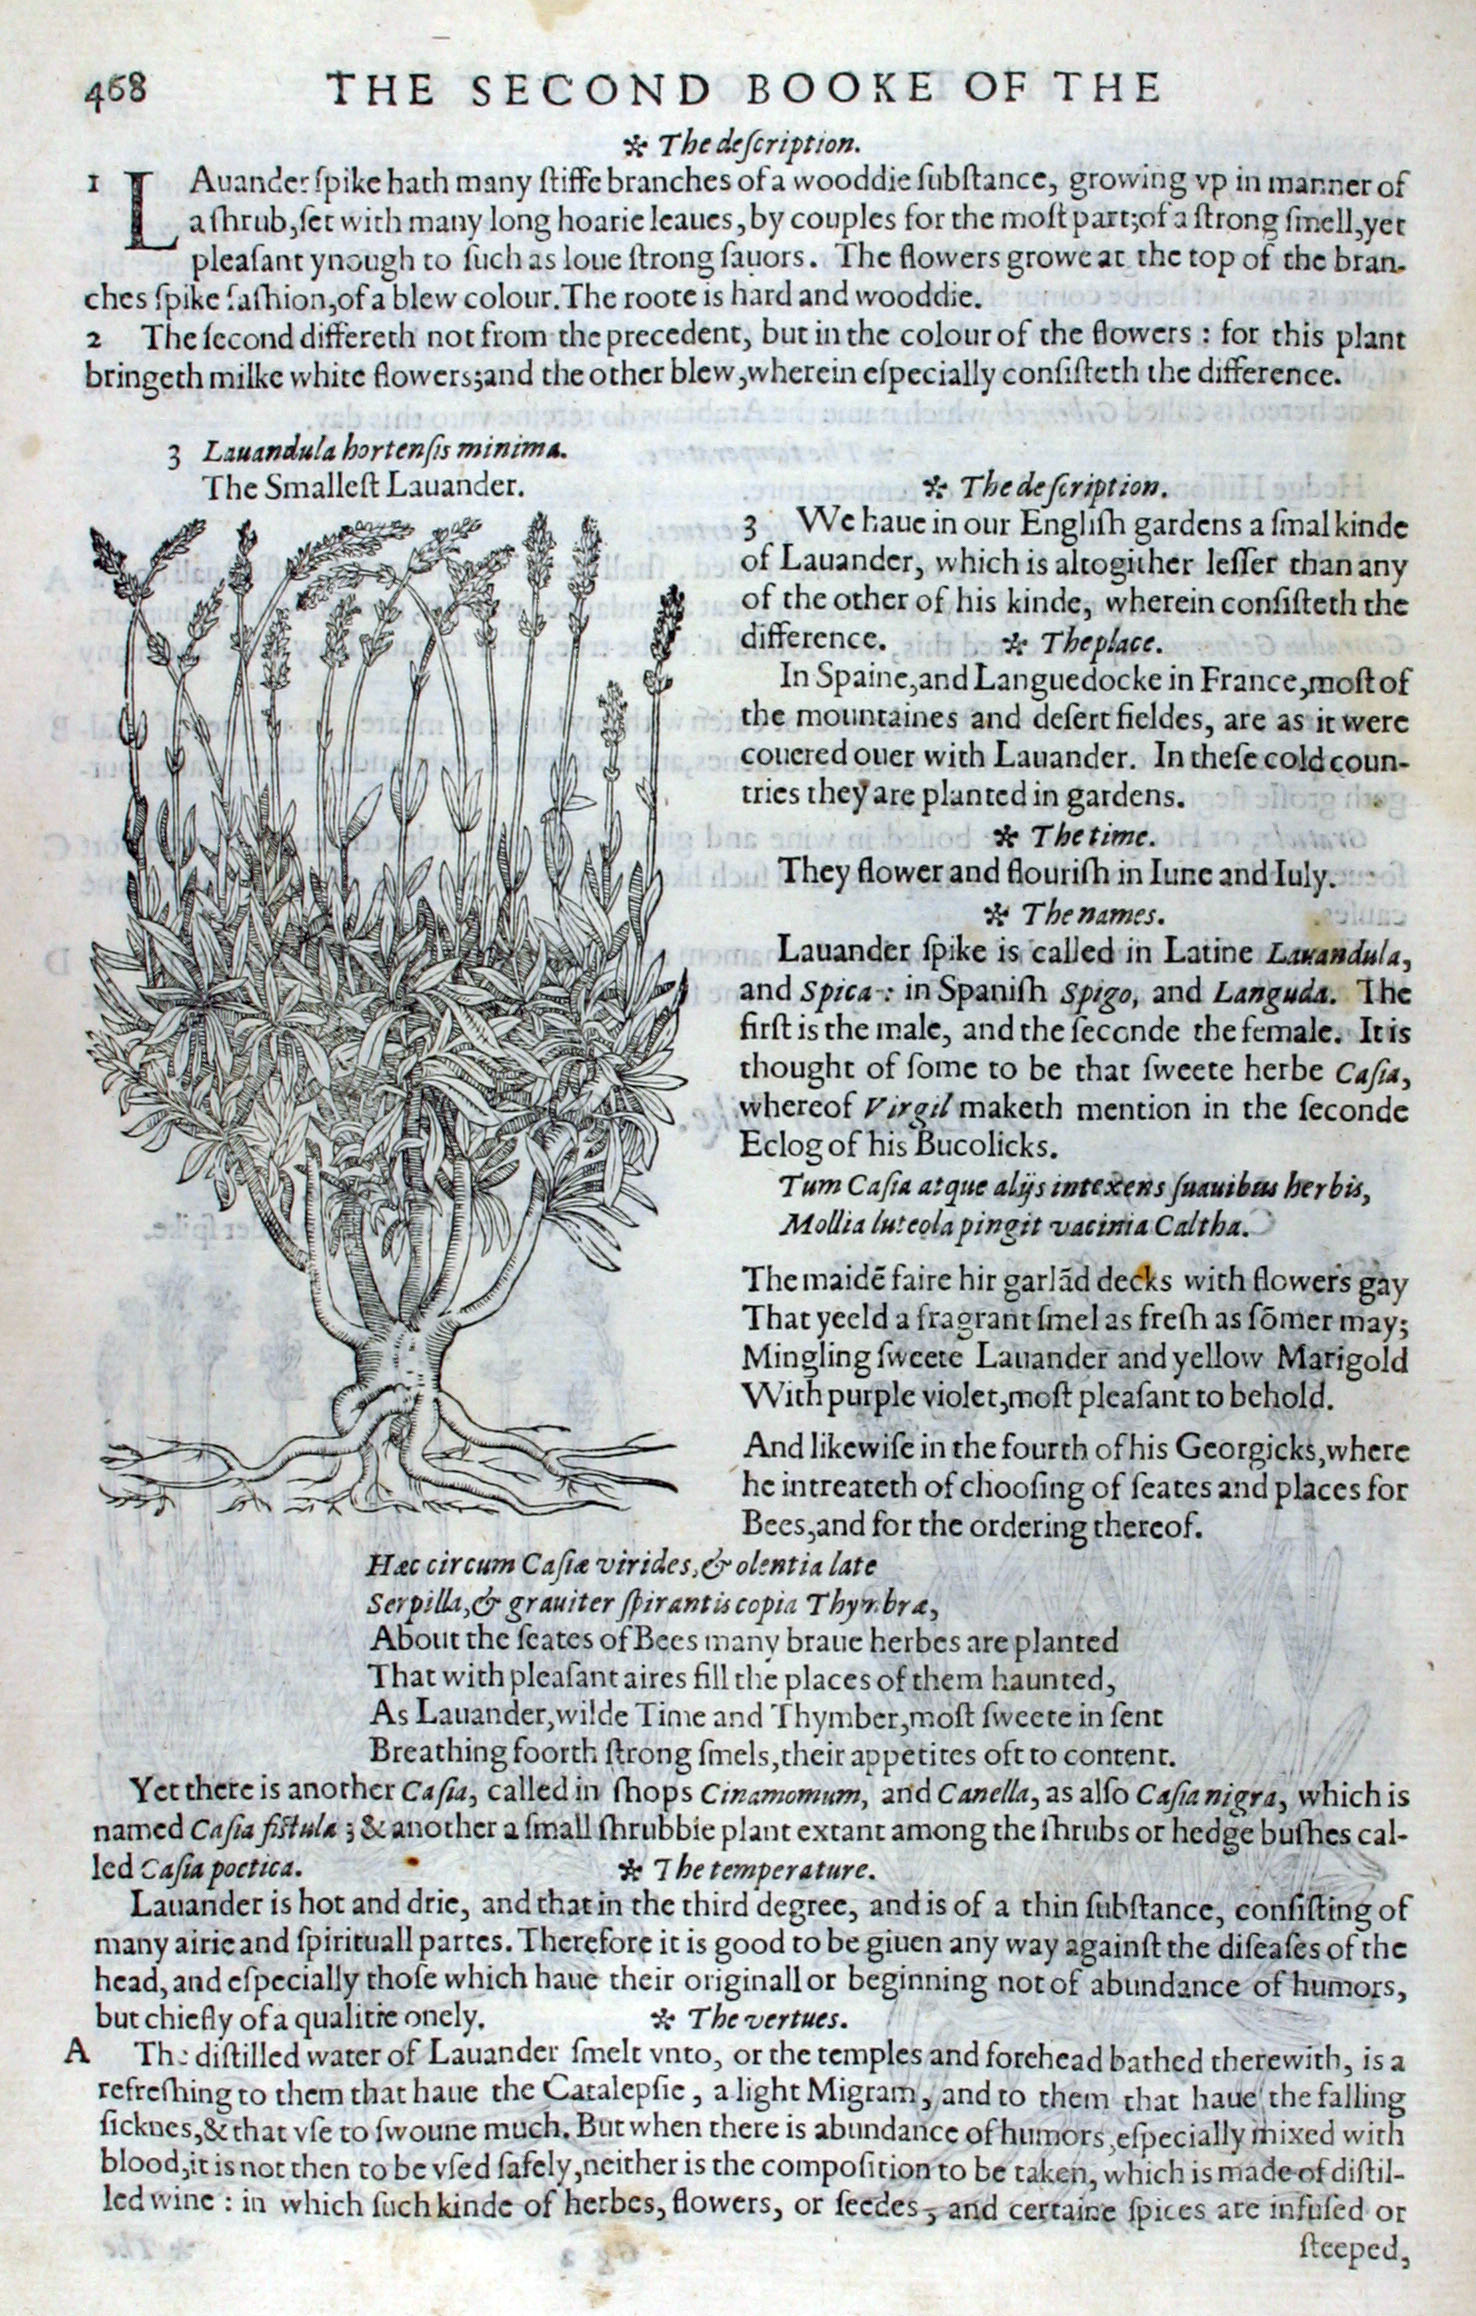 468 THE SECOND BOOKE OF THE
✲ The deſcription.
1 LAuander ſpike hath many ſtiffe branches of a wooddie ſubſtance, growing vp in manner of
a ſhrub, ſet with many long hoarie leaues, by couples for the moſt part; of a ſtrong ſmell, yet
pleaſant ynough to ſuch as loue ſtrong ſauors. The flowers growe at the top of the bran-
ches ſpike faſhion, of a blew colour. The roote is hard and wooddie.
2 The ſecond differeth not from the precedent, but in the colour of the flowers : for this plant
bringeth milke white flowers; and the other blew, wherein eſpecially conſiſteth the difference.
3 Lauandula hortenſis minima.
The Smalleſt Lauander.
✲ The deſcription.
3 We haue in our Engliſh gardens a ſmal kinde
of Lauander, which is altogither leſſer than any
of the other of his kinde, wherein conſiſteth the
difference. ✲ The place.
In Spaine, and Languedocke in France, moſt of
the mountaines and deſert fieldes, are as it were
couered ouer with Lauander. In theſe cold coun-
tries they are planted in gardens.
✲ The time.
They flower and flouriſh in Iune and Iuly.
✲ The names.
Lauander ſpike is called in Latine Lauandula,
and Spica : in Spaniſh Spigo, and Languda. The
firſt is the male, and the ſeconde the female. It is
thought of ſome to be that ſweete herbe Caſia,
whereof Virgil maketh mention in the ſeconde
Eclog of his Bucolicks.
Tum Caſia atque alijs intexens ſuauibus herbis,
Mollia luteola pingit vacinia Caltha.
The maidē faire hir garlād decks with flowers gay
That yeeld a fragrant ſmel as freſh as ſōmer may;
Mingling ſweete Lauander and yellow Marigold
With purple violet, moſt pleaſant to behold.
And likewiſe in the fourth of his Georgicks, where
he intreateth of chooſing of ſeates and places for
Bees, and for the ordering thereof.
Hæc circum Caſiæ virides, & olentia late
Serpilla, & grauiter ſpirantis copia Thymbræ,
About the ſeates of Bees many braue herbes are planted
That with pleaſant aires fill the places of them haunted,
As Lauander, wilde Time and Thymber, moſt ſweete in ſent
Breathing foorth ſtrong ſmels, their appetites oft to content.
Yet there is another Caſia, called in ſhops Cinamomum, and Canella, as alſo Caſia nigra, which is
named Caſia fiſtula ; & another a ſmall ſhrubbie plant extant among the ſhrubs or hedge buſhes cal-
led Caſia poetica. ✲ The temperature.
Lauander is hot and drie, and that in the third degree, and is of a thin ſubſtance, conſiſting of
many airie and ſpirituall partes. Therefore it is good to be giuen any way againſt the diſeaſes of the
head, and eſpecially thoſe which haue their originall or beginning not of abundance of humors,
but chiefly of a qualitie onely. ✲ The vertues.
A The diſtilled water of Lauander ſmelt vnto, or the temples and forehead bathed therewith, is a
refreſhing to them that haue the Catalepſie, a light Migram, and to them that haue the falling
ſicknes, & that vſe to ſwoune much. But when there is abundance of humors, eſpecially mixed with
blood, it is not then to be vſed ſafely, neither is the compoſition to be taken, which is made of diſtil-
led wine : in which ſuch kinde of herbes, flowers, or ſeedes, and certaine ſpices are infuſed or
ſteeped,